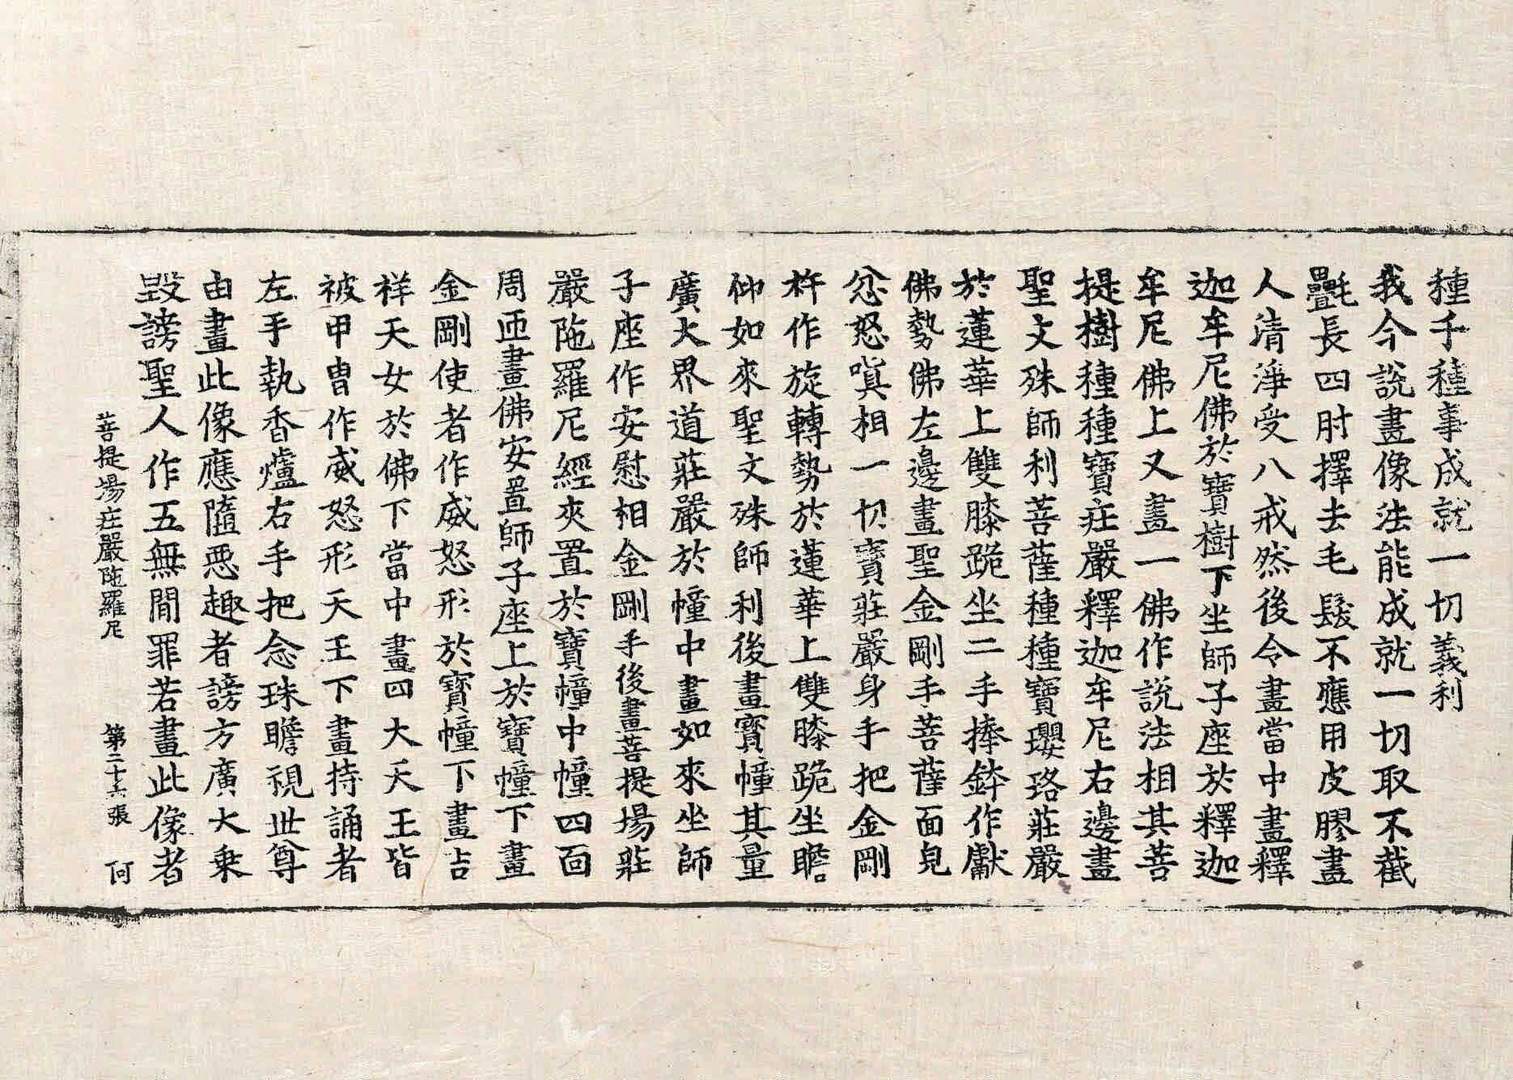 種千種事成就一切義利
我今說畫像法能成就一切取不截
氎長四肘擇去毛髮不應用皮膠畫
人清淨受八戒然後令畫當中畫釋
迦牟尼佛於寶樹下坐師子座於釋迦
牟尼佛上又畫一佛作說法相其菩
提樹種種寶莊嚴釋迦牟尼右邊畫
聖文殊師利菩薩種種寶瓔珞莊嚴
於蓮華上雙膝跪坐二手捧鉢作獻
佛勢佛左邊畫聖金剛手菩薩面皃
忿怒嗔相一切寶莊嚴身手把金剛
杵作旋轉勢於蓮華上雙膝跪坐瞻
仰如來聖文殊師利後畫寶幢其量
廣大界道莊嚴於幢中畫如來坐師
子座作安慰相金剛手後畫菩提場莊
嚴陁羅尼經夾置於寶幢中幢四面
周匝畫佛安置師子座上於寶幢下畫
金剛使者作威怒形於寶幢下畫吉
祥天女於佛下當中畫四大天王皆
被甲冑作威怒形天王下畫持誦者
左手執香爐右手把念珠瞻視世尊
由畫此像應隨惡趣者謗方廣大乘
毀謗聖人作五無間罪若畫此像者
菩提場莊嚴陁羅尼 第二十六張 何